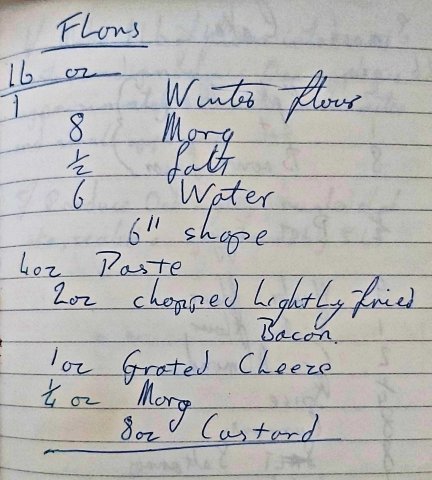 Flons
lb oz
1 Winter flour
8 Marg
½ Salt
6 Water
6" shape
4oz Paste
2oz chopped lightly fried
Bacon.
1oz Grated Cheeze
¼ oz Marg
8oz Custard